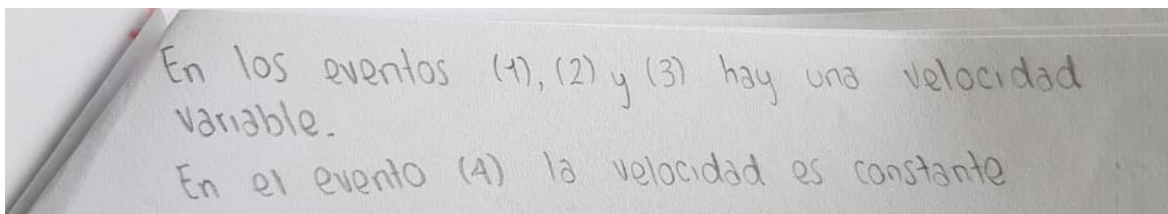 En los eventos (1), (2) y (3) hay una velocidad
variable.
En el evento (4) la velocidad es constante